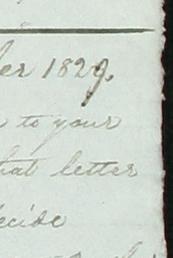 ber 1829.
to your
that letter
decide